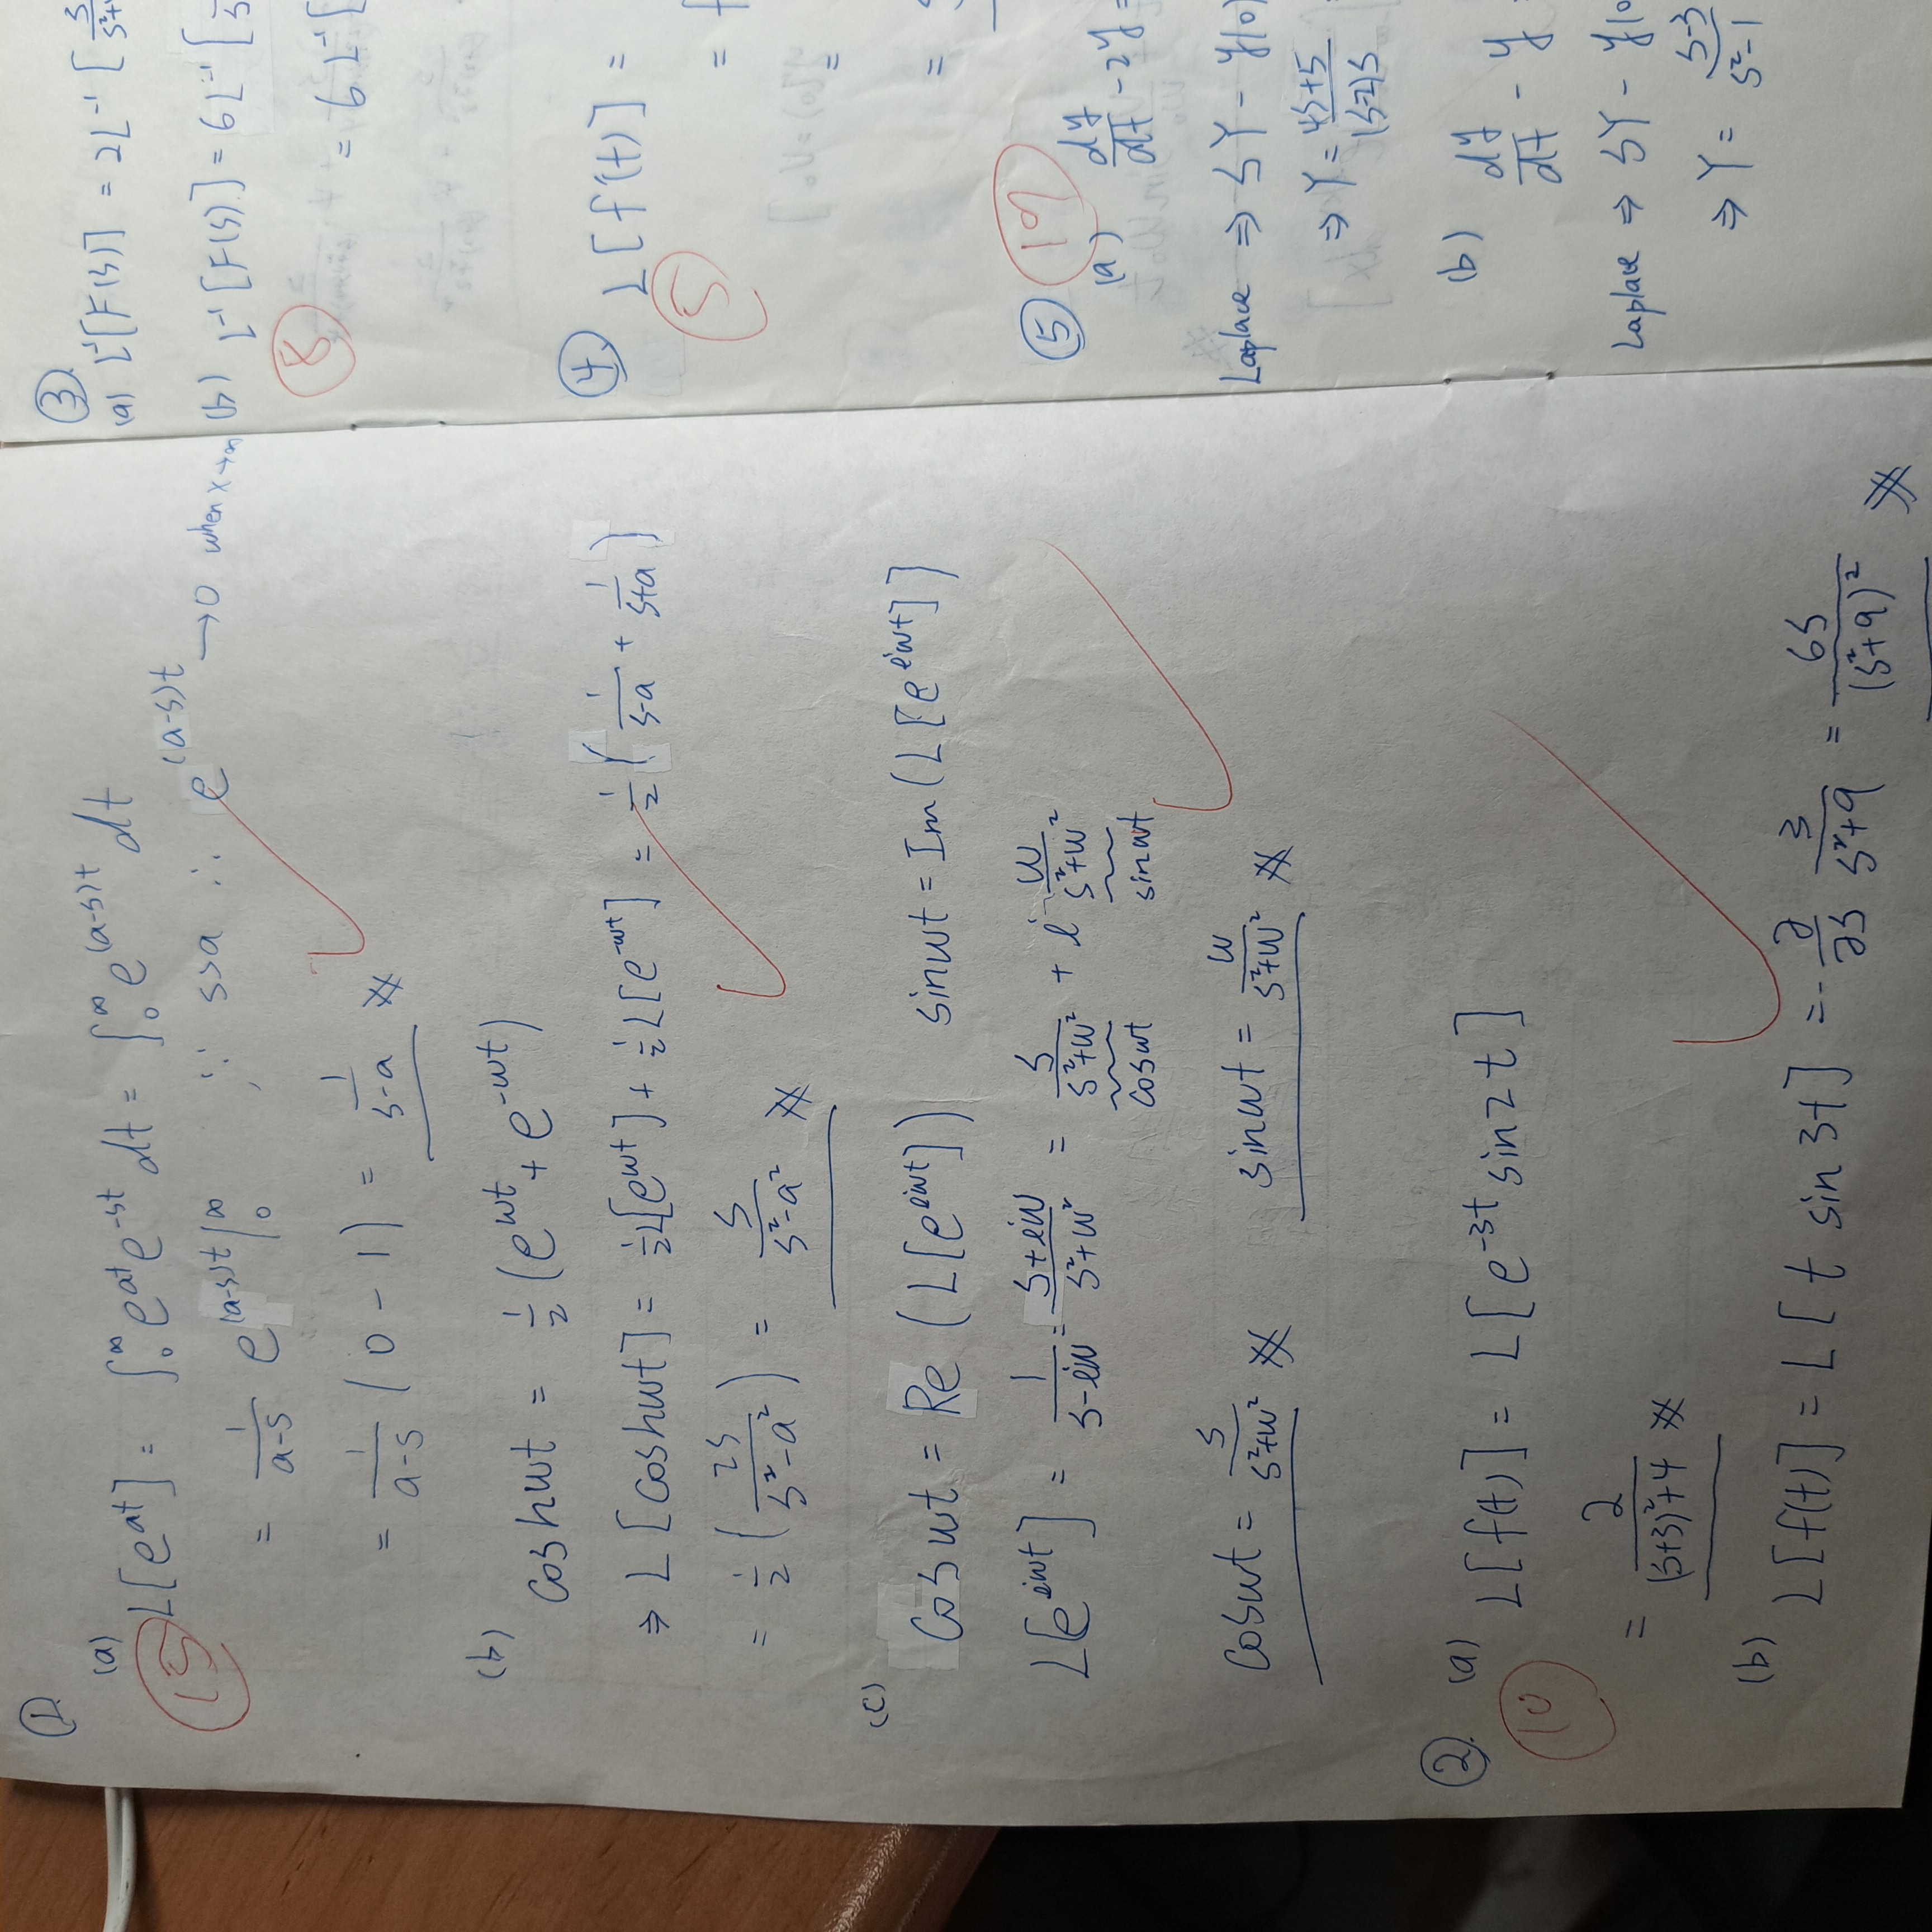 ①
(a) L[e^{at}] = ∫₀^∞ e^{at}e^{-st} dt = ∫₀^∞ e^{(a-s)t} dt
15
= 1/(a-s) e^{(a-s)t}|₀^∞ , ∵ s>a ∴ e^{(a-s)t} → 0 when x→∞
= 1/(a-s) (0-1) = 1/(s-a) ※
(b) coshwt = 1/2 (e^{wt} + e^{-wt})
⇒ L[coshwt] = 1/2 L[e^{wt}] + 1/2 L[e^{-wt}] = 1/2 (1/(s-a) + 1/(s+a))
= 1/2 (2s/(s²-a²)) = s/(s²-a²) ※
(c) Coswt = Re (L[e^{iwt}]) sinwt = Im (L[e^{iwt}])
L[e^{iwt}] = 1/(s-iw) = (s+iw)/(s²+w²) = s/(s²+w²) + i w/(s²+w²)
coswt sinwt
Coswt = s/(s²+w²) ※ sinwt = w/(s²+w²) ※
②
(a) L[f(t)] = L[e^{-3t} sin2t]
10
= 2/((s+3)²+4) ※
(b) L[f(t)] = L[t sin3t] = -∂/∂s 3/(s²+9) = 6s/(s²+9)² ※
③
(a) L⁻¹[F(s)] = 2L⁻¹[
(b) L⁻¹[F(s)] = 6L⁻¹[
8
= 6L⁻¹[
④
L[f'(t)] =
5
=
=
=
⑤
10
(a) dy/dt - 2y =
Laplace ⇒ sY - y(0)
⇒ Y = (4s+5)/((s-2)s
(b) dy/dt - y =
Laplace ⇒ sY - y(0
⇒ Y = (s-3)/(s²-1